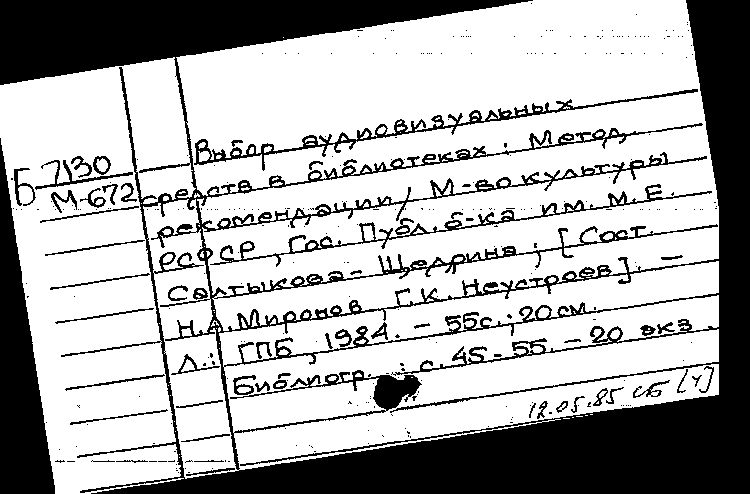 Б 7130
М-672
Выбор аудиовизуальных
средств в библиотеках : Метод.
рекомендации / М-во культуры
РСФСР, Гос. Публ. б-ка им. М. Е.
Салтыкова-Щедрина ; [Сост.
Н.А. Миронов, Г.К. Неустроев]. —
Л.: ГПБ, 1984. – 55с. ; 20см.
Библиогр. : с. 45-55. – 20 экз.
12.05.85 СБ [4]